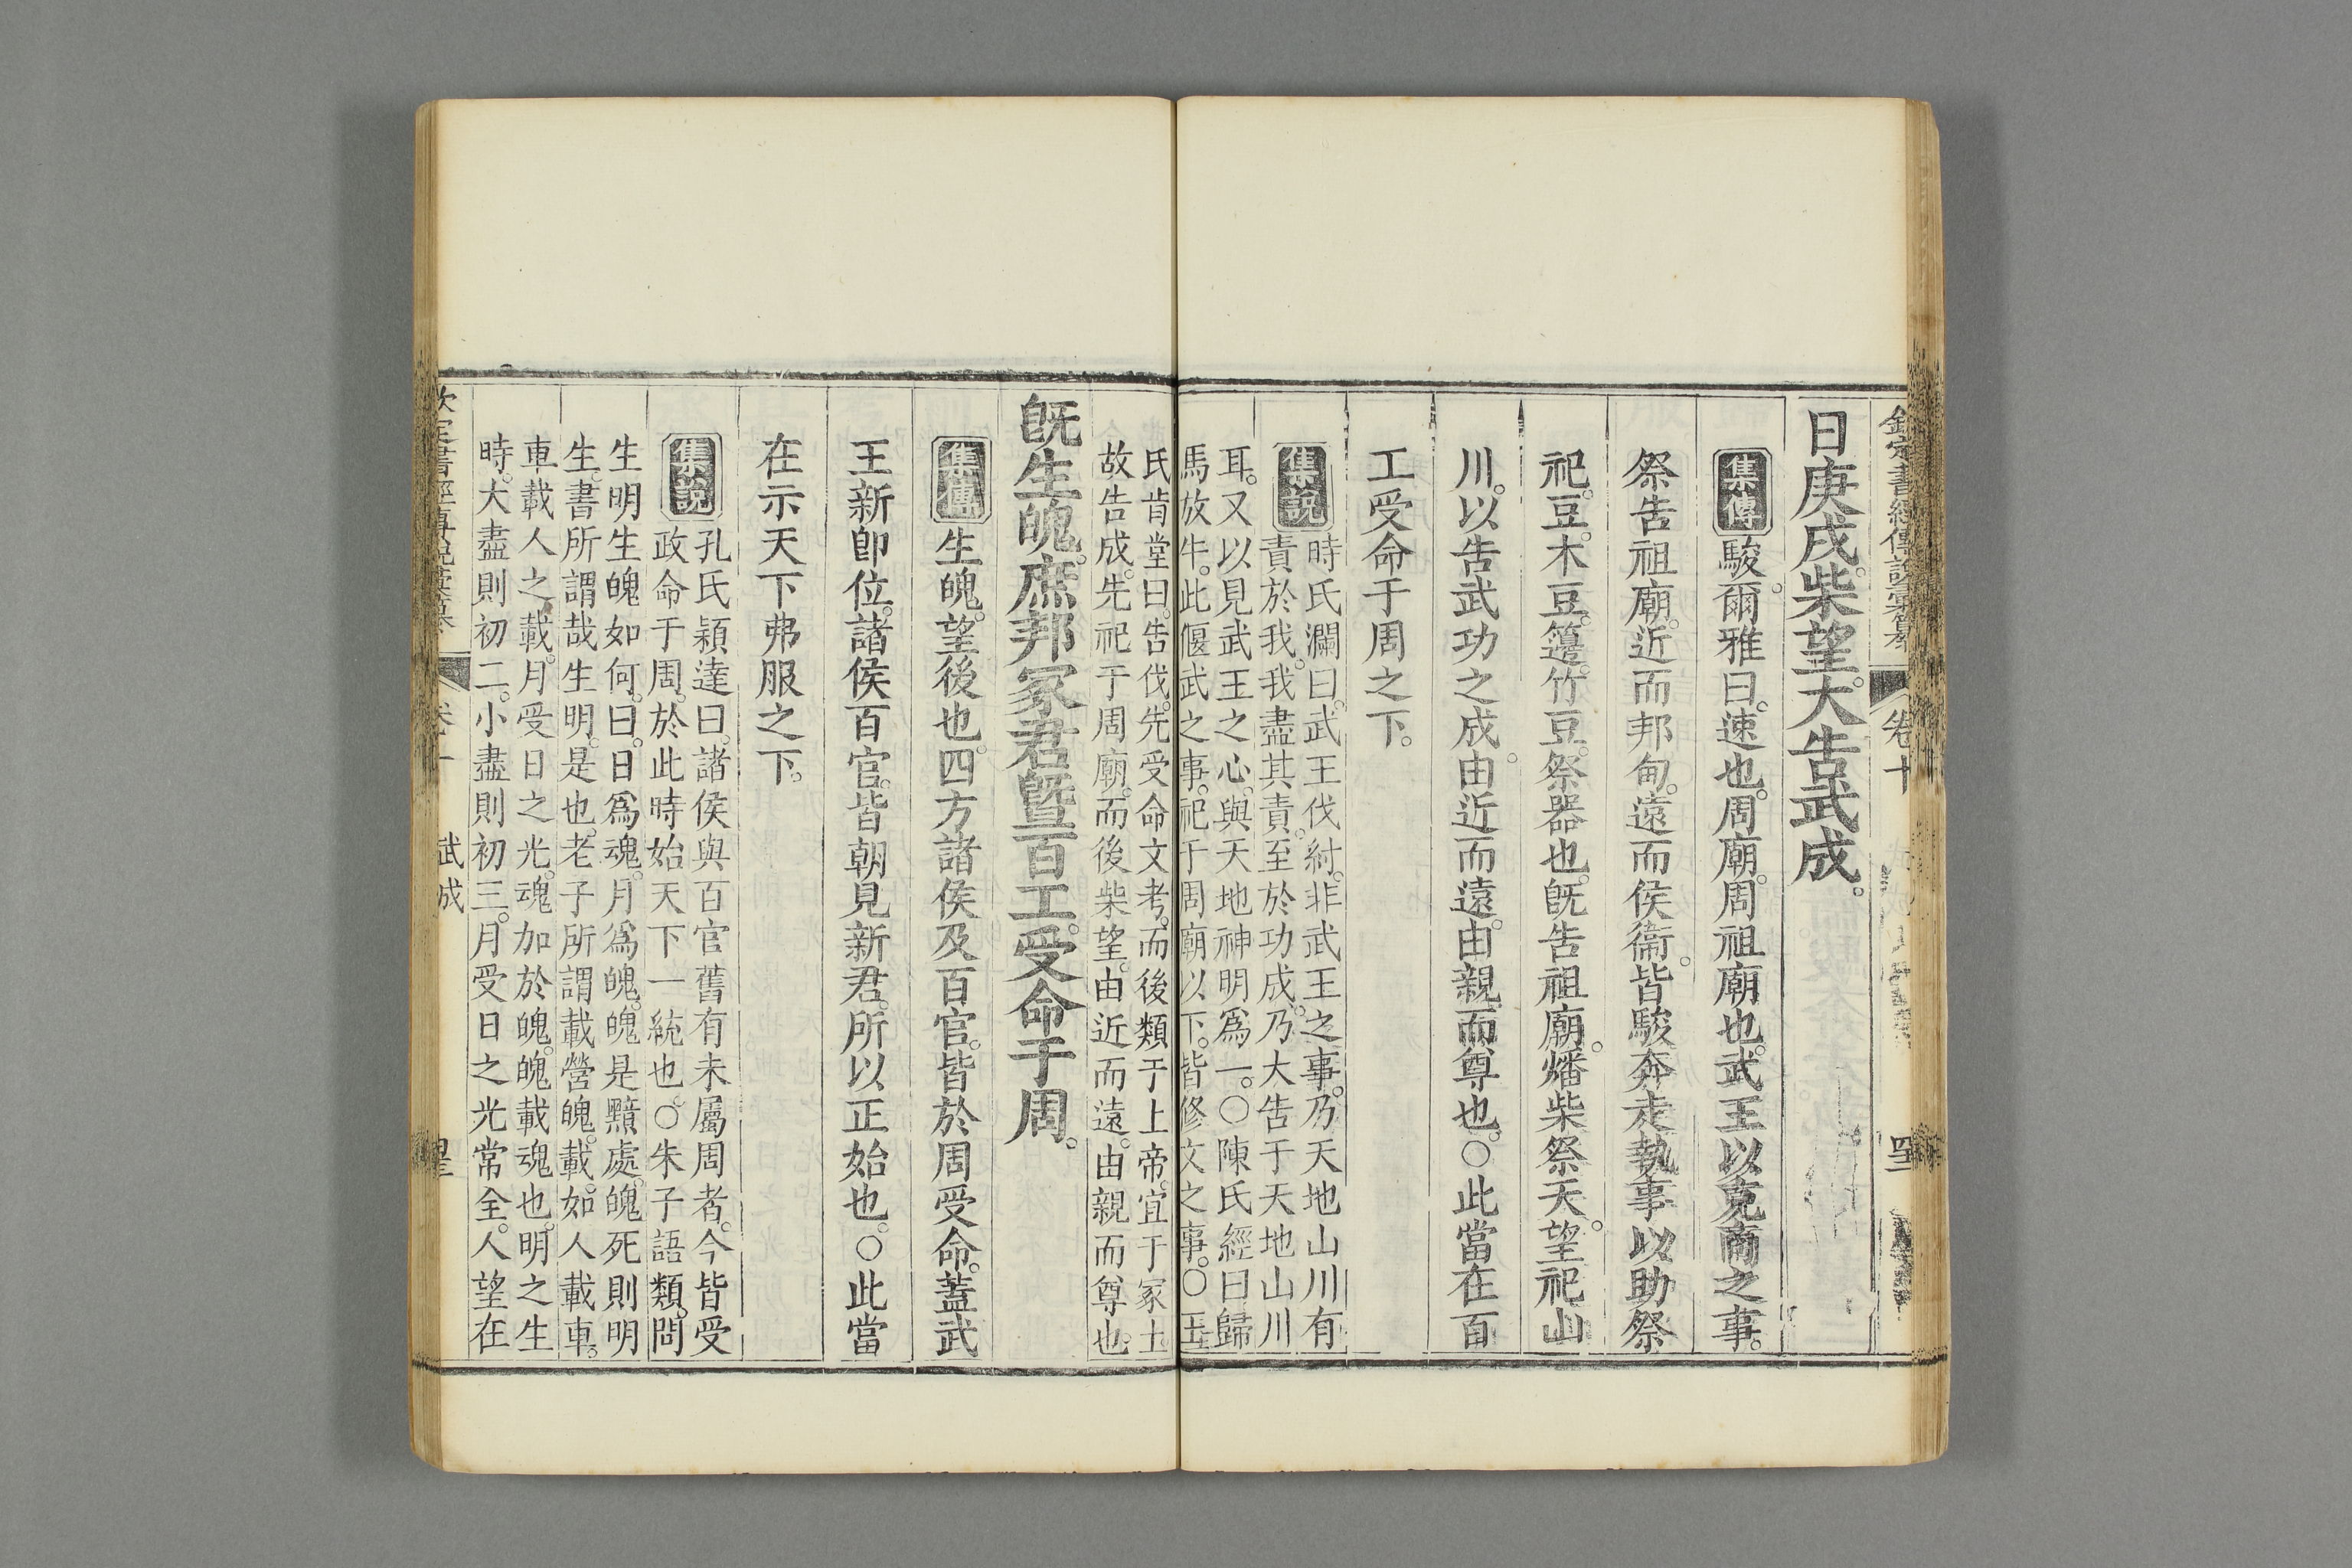 欽定書經傳說彙纂 卷十
日庚戌。柴望。大告武成。
集傳 駿。爾雅曰。速也。周廟。周祖廟也。武王以克商之事。
祭告祖廟。近而邦甸。遠而侯衞。皆駿奔走執事以助祭
祀。豆。木豆。籩。竹豆。祭器也。旣告祖廟。燔柴祭天。望祀山
川。以告武功之成。由近而遠。由親而尊也。○此當在百
工受命于周之下。
集說 時氏瀾曰。武王伐紂。非武王之事。乃天地山川有
責於我。我盡其責。至於功成。乃大告于天地山川
耳。又以見武王之心。與天地神明爲一。○陳氏經曰歸
馬放牛。此偃武之事。祀于周廟以下。皆修文之事。○王
氏肯堂曰。告伐。先受命文考。而後類于上帝。宜于冢土
故告成。先祀于周廟。而後柴望。由近而遠。由親而尊也。
旣生魄。庶邦冢君曁百工。受命于周。
集傳 生魄。望後也。四方諸侯及百官。皆於周受命。蓋武
王新卽位。諸侯百官。皆朝見新君。所以正始也。○此當
在示天下弗服之下。
集說 孔氏穎達曰。諸侯與百官舊有未屬周者。今皆受
政命于周。於此時始天下一統也。○朱子語類。問
生明生魄如何。曰。日爲魂。月爲魄。魄是黯處。魄死則明
生。書所謂哉生明。是也。老子所謂載營魄。載。如人載車。
車載人之載。月受日之光。魂加於魄。魄載魂也。明之生
時。大盡則初二。小盡則初三。月受日之光常全。人望在
武成